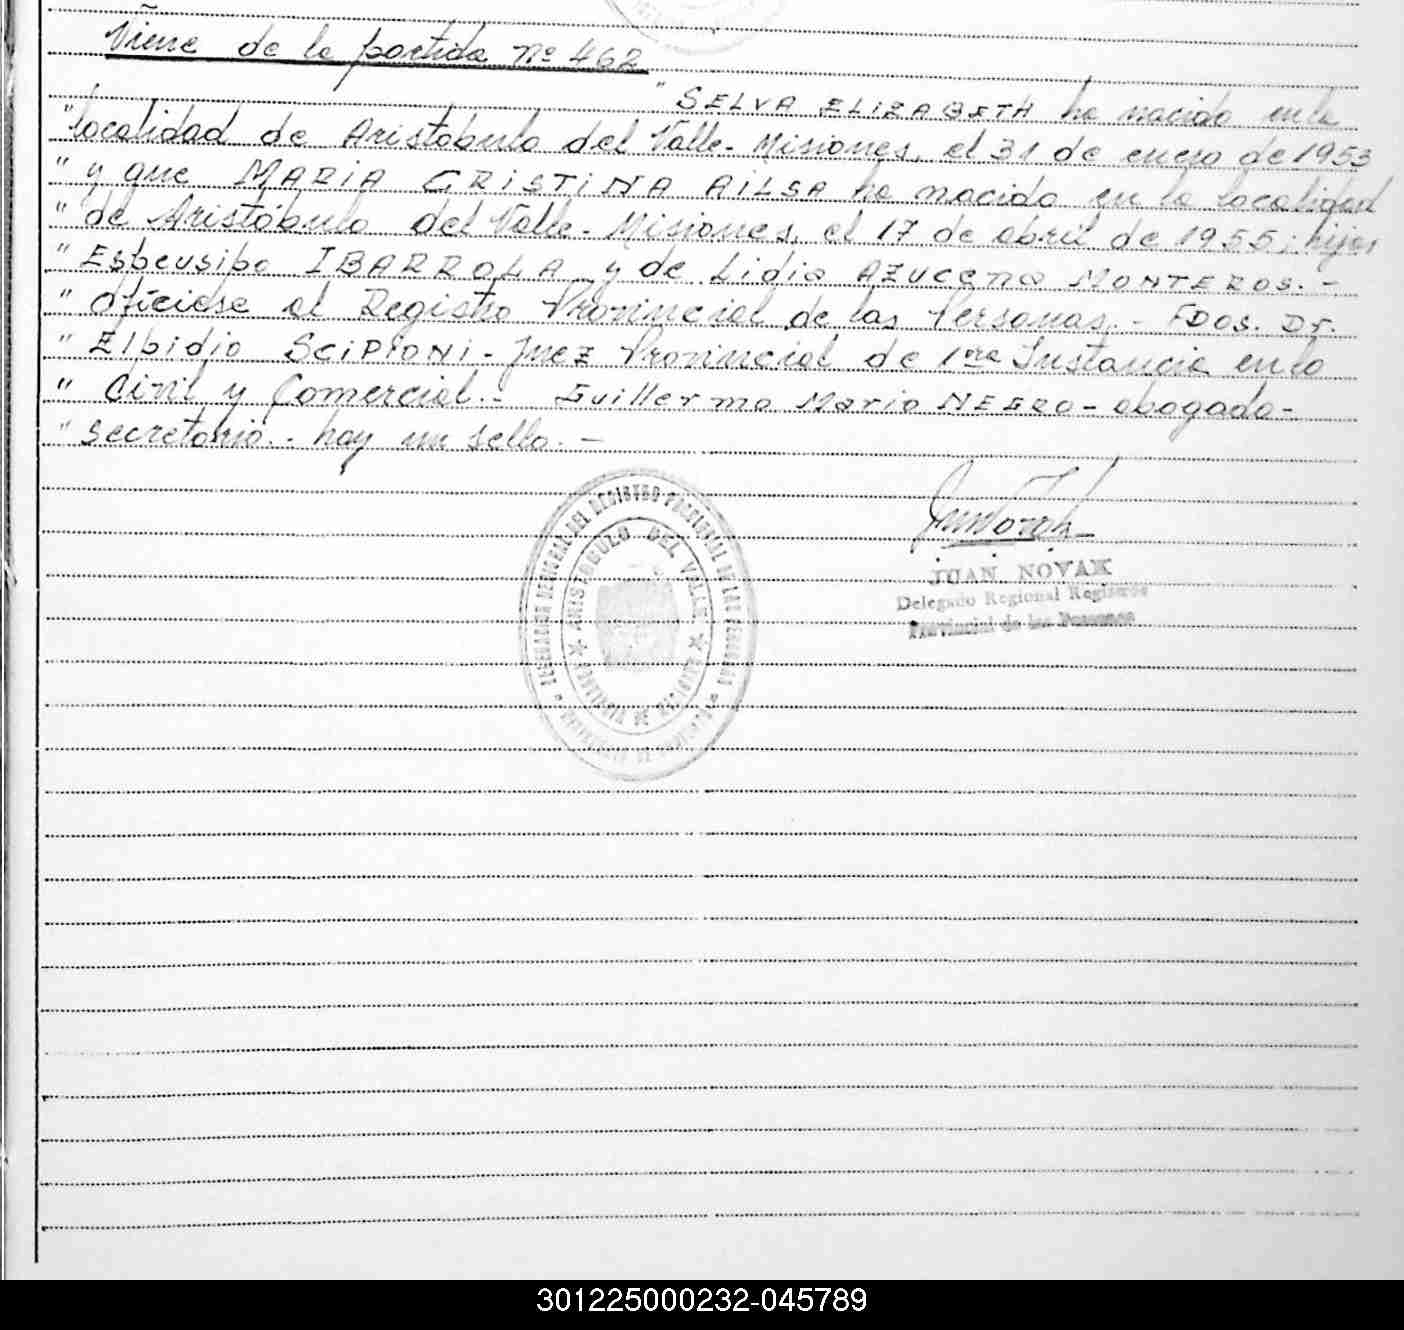 Viene de la partida Nº 462
" SELVA ELIZABETH ha nacido en la
" localidad de Aristóbulo del Valle - Misiones, el 31 de enero de 1953
" y que MARIA CRISTINA AILSA ha nacido en la localidad
" de Aristóbulo del Valle - Misiones, el 17 de abril de 1955; hijos
" Espeusipo IBARROLA y de Lidia AZUCENA MONTEROS. -
" Ofíciese al Registro Provincial de las Personas. - FDOS. Dr.
" Elpidio SCIPIONI - Juez Provincial de 1ra Instancia en lo
" Civil y Comercial. - Guillermo Mario NEGRO - abogado -
" secretario. - hay un sello. -
JUAN NOVAK
Delegado Regional Registro
Provincial de las Personas
DELEGACION REGIONAL DEL REGISTRO PROVINCIAL DE LAS PERSONAS
ARISTOBULO DEL VALLE
PROVINCIA DE MISIONES
301225000232-045789